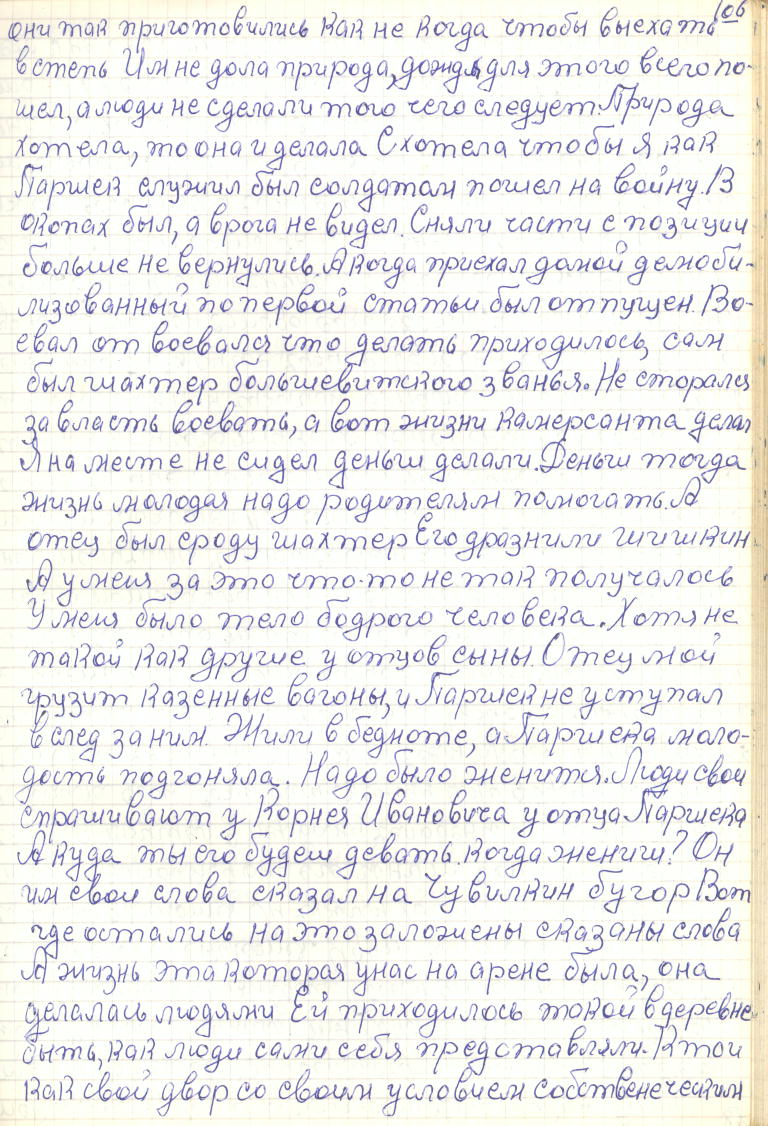 106
они так приготовились как не когда чтобы выехать
в степь Им не дола природа, дождя для этого всего по-
шел, а люди не сделали того чего следует. Природа
хотела, то она и делала Схотела чтобы я как
Паршек служил был солдатам пошел на войну. В
окопах был, а врога не видел. Сняли части с позиции
больше не вернулись. А когда приехал домой демоби-
лизованный по первой статьи был отпущен. Во-
евал от воевался что делать приходилось, сам
был шахтер большевитского званья. Не сторался
за власть воевать, а вот жизни камерсанта делал
Я на месте не сидел деньги делали. Деньги тогда
жизнь молодая надо родителям помогать. А
отец был сроду шахтер Его дразнили шишкин
А у меня за это что-то не так получалось
У меня было тело бодрого человека. Хотя не
такой как другие у отцов сыны. Отец мой
грузит казенные вагоны, и Паршек не уступал
в след за ним. Жили в бедноте, а Паршека моло-
дость подгоняла. Надо было женится. Люди свои
спрашивают у Корнея Ивановича у отца Паршека
А куда ты его будеш девать, когда жениш? Он
им свои слова сказал на Чувилкин бугор Вот
где остались на это заложены сказаны слова
А жизнь эта которая у нас на арене была, она
делалась людями Ей приходилось такой в деревне
быть, как люди сами себя представляли. К той
как свой двор со своим условием собственеческим